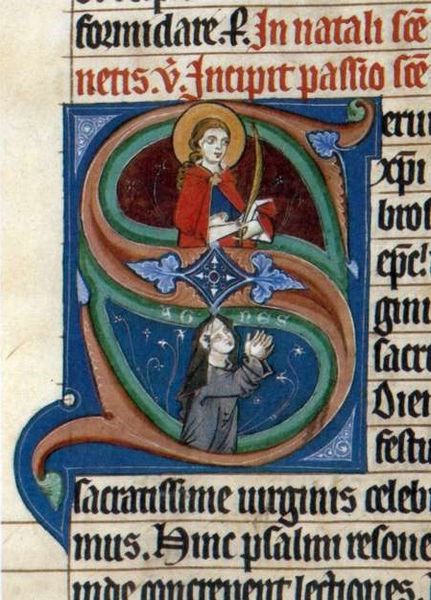 formidare. In natali scē
netis. Incipit passio scē
Serui
xp̄i
bros
ep̄c
gini
AGNES
sacr
Dien
festu
sacratissime uirginis celebr
mus. Hinc psalmi resone
inde concrepent lectiones.